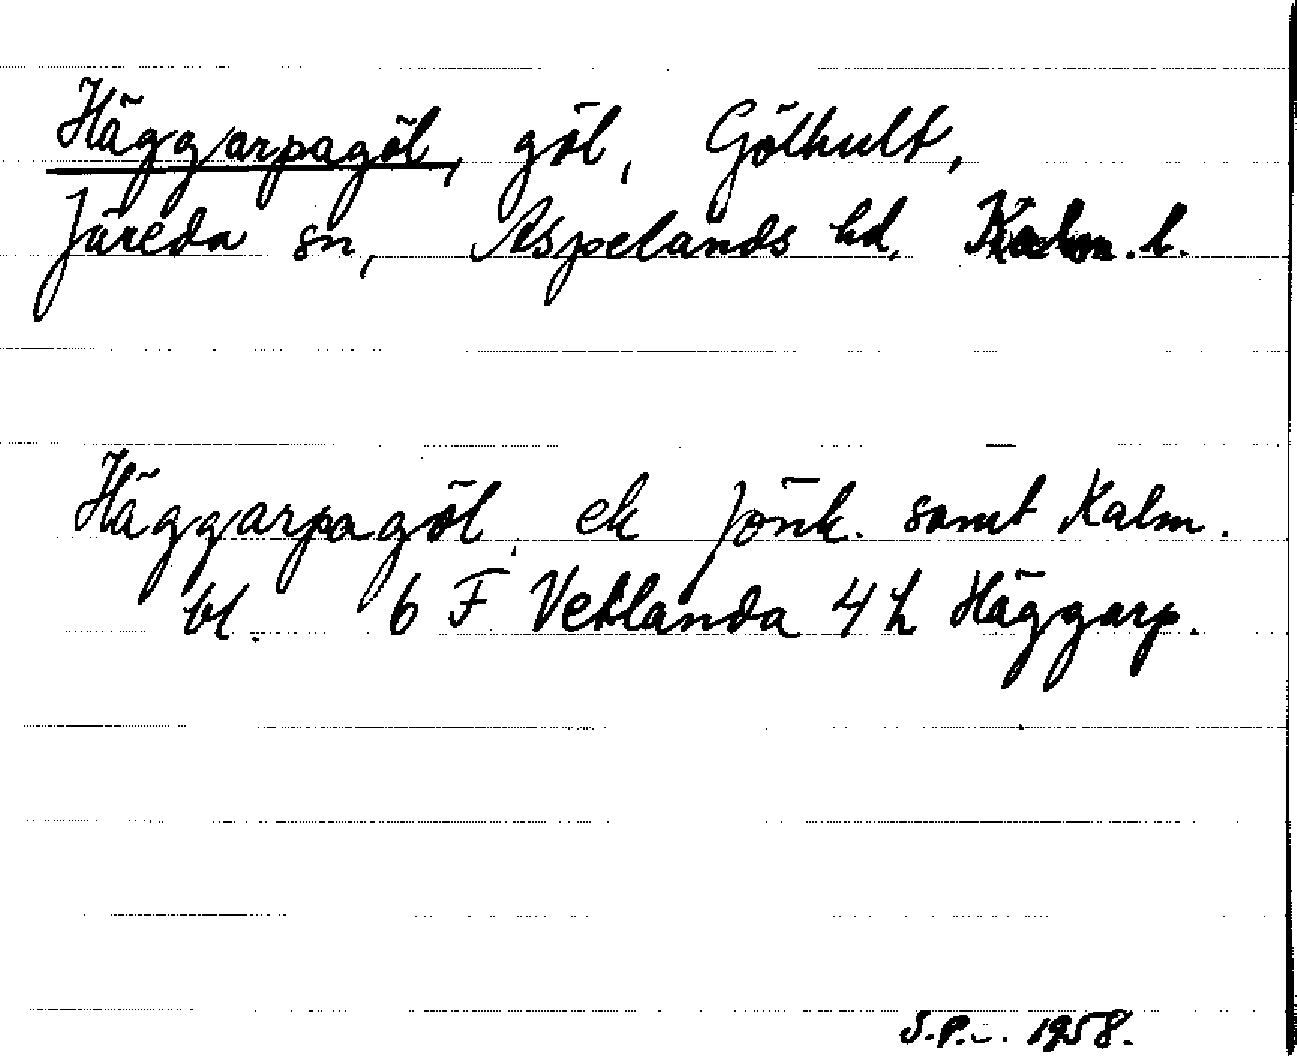 Häggarpagöl, göl, Gölhult,
Järeda sn, Aspelands hd. Kalm. l.
Häggarpagöl, ek Jönk. samt Kalm.
bl. 6 F Vetlanda 4 h Häggarp.
S.P. 1958.